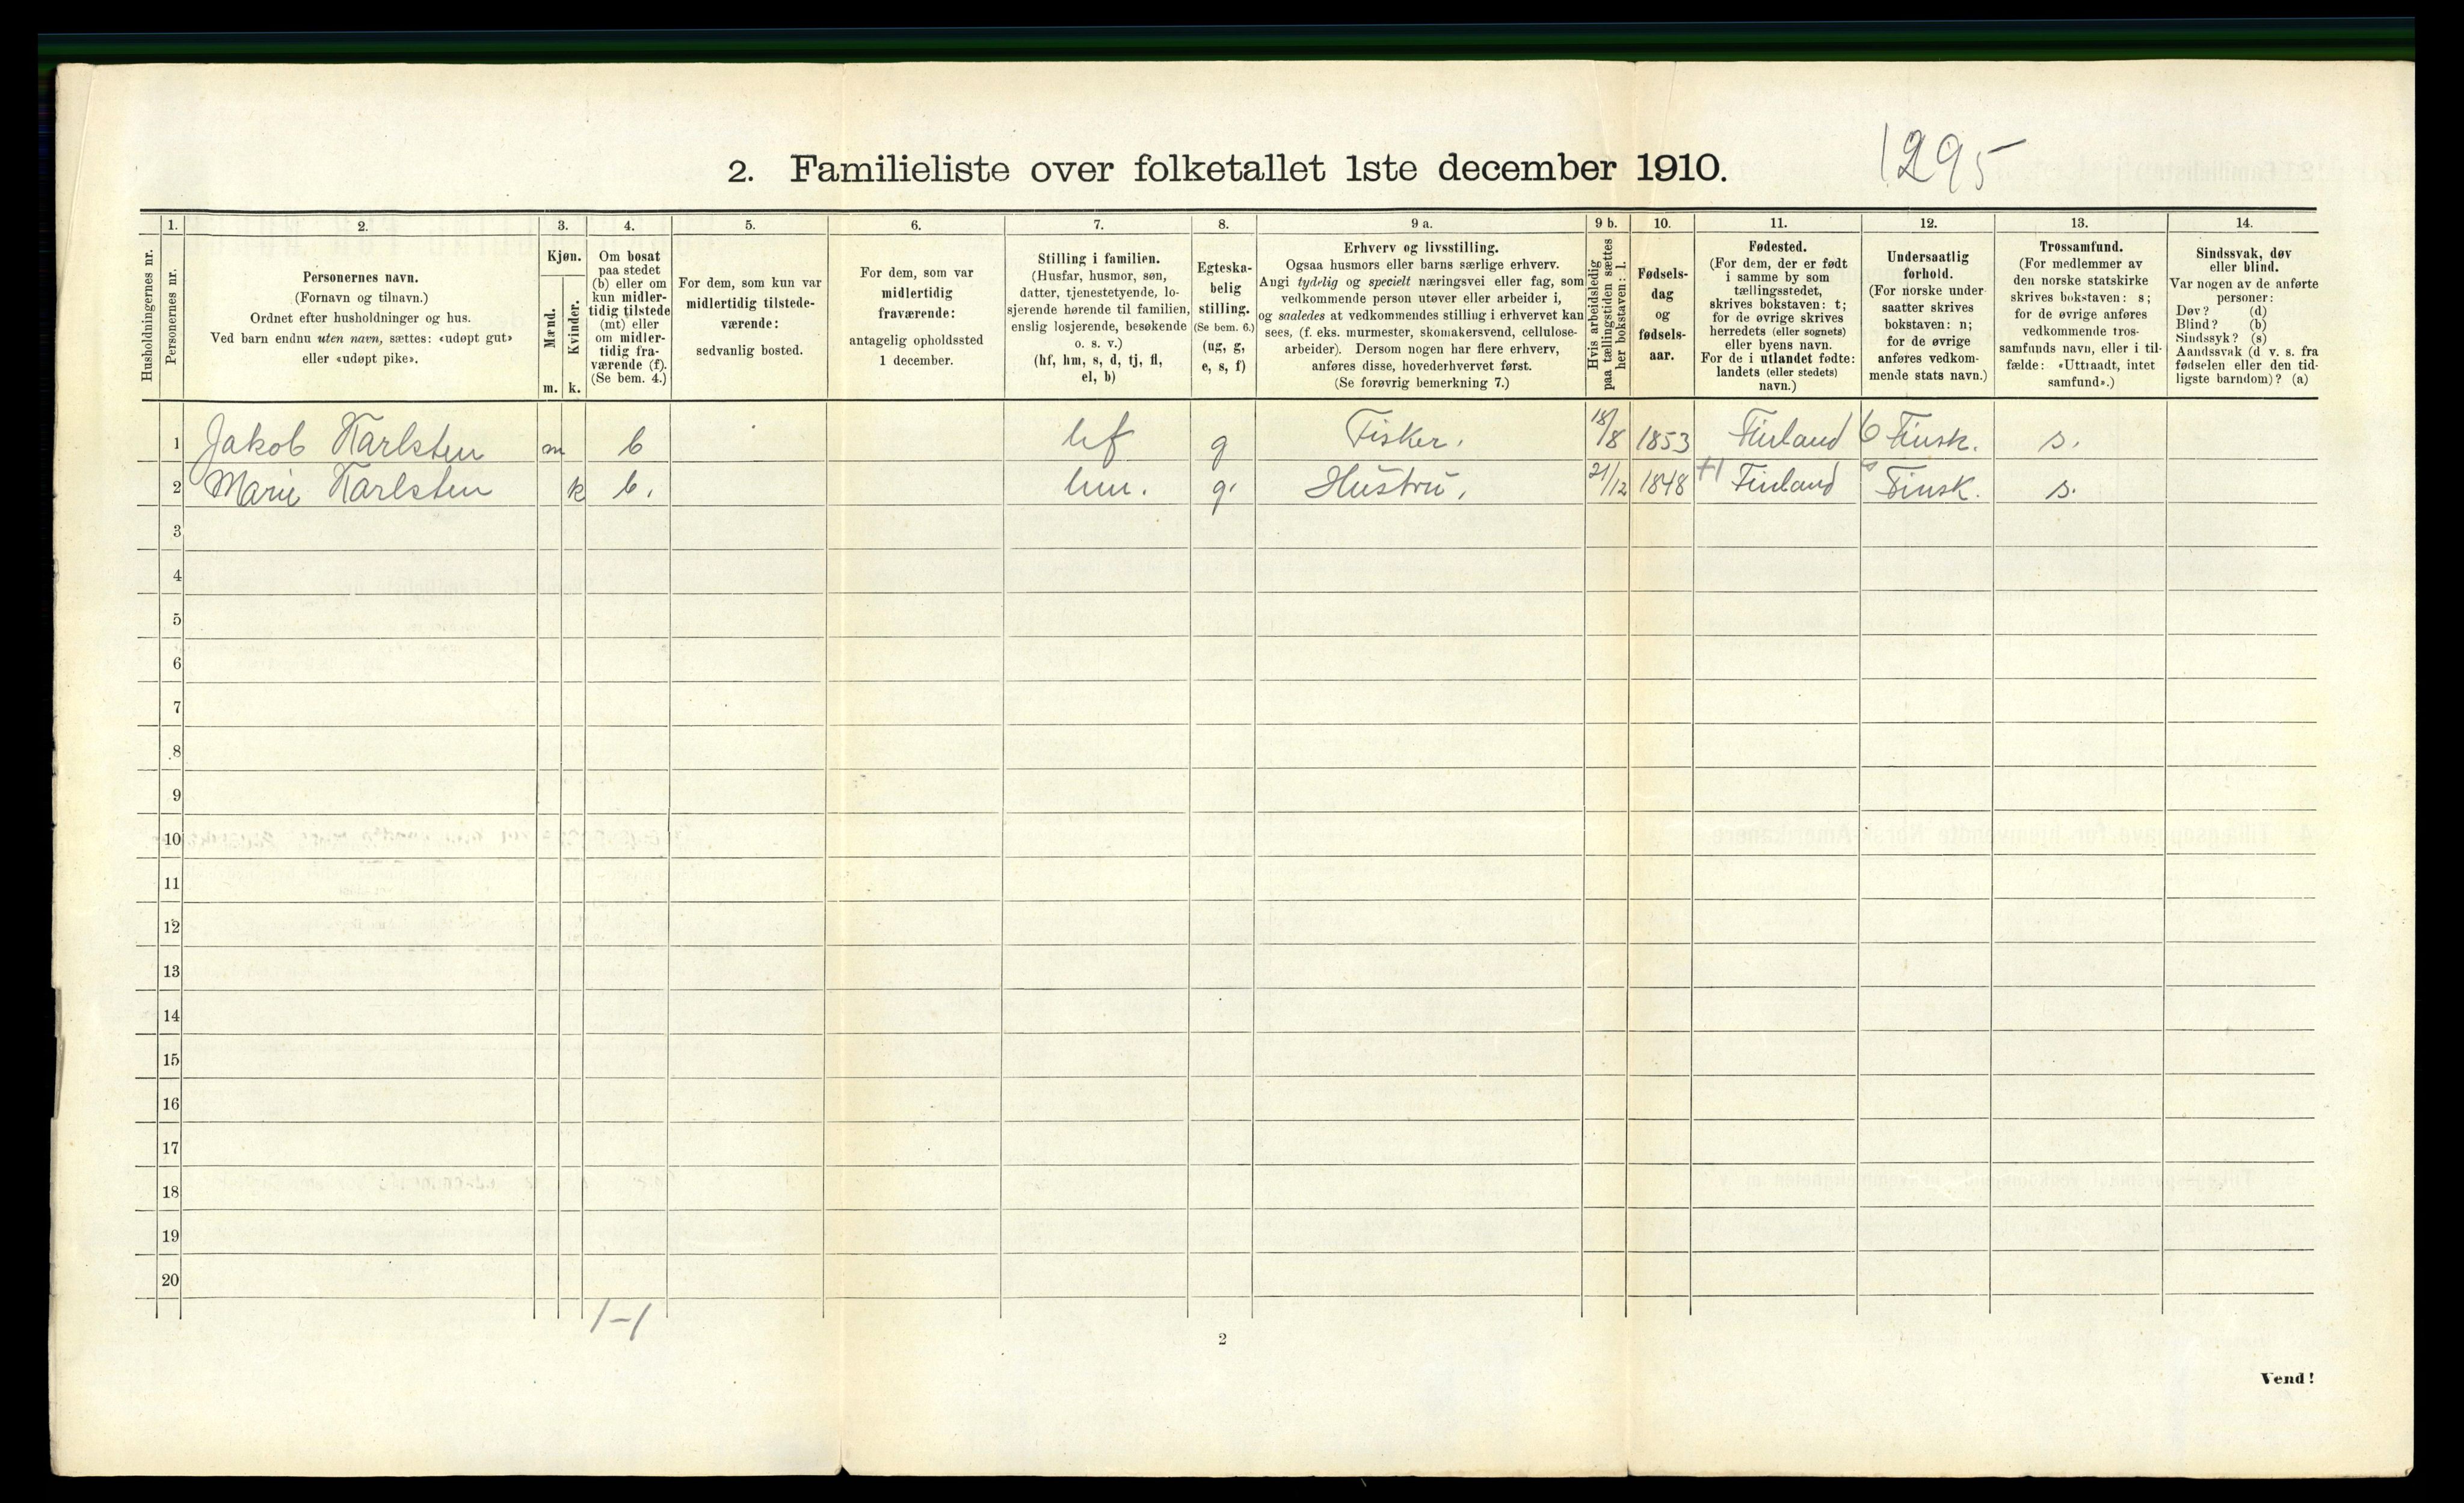 2. Familieliste over folketallet 1ste december 1910.
1295
Husholdningernes nr.
1.
Personernes nr.
2.
Personernes navn.
(Fornavn og tilnavn.)
Ordnet efter husholdninger og hus.
Ved barn endnu uten navn, sættes: «udøpt gut»
eller «udøpt pike».
3.
Kjøn.
Mænd.
m.
Kvinder.
k.
4.
Om bosat
paa stedet
(b) eller om
kun midler-
tidig tilstede
(mt) eller
om midler-
tidig fra-
værende (f).
(Se bem. 4.)
5.
For dem, som kun var
midlertidig tilstede-
værende:
sedvanlig bosted.
6.
For dem, som var
midlertidig
fraværende:
antagelig opholdssted
1 december.
7.
Stilling i familien.
(Husfar, husmor, søn,
datter, tjenestetyende, lo-
sjerende hørende til familien,
enslig losjerende, besøkende
o. s. v.)
(hf, hm, s, d, tj, fl,
el, b)
8.
Egteska-
belig
stilling.
(Se bem. 6.)
(ug, g,
e, s, f)
9 a.
Erhverv og livsstilling.
Ogsaa husmors eller barns særlige erhverv.
Angi tydelig og specielt næringsvei eller fag, som
vedkommende person utøver eller arbeider i,
og saaledes at vedkommendes stilling i erhvervet kan
sees, (f. eks. murmester, skomakersvend, cellulose-
arbeider). Dersom nogen har flere erhverv,
anføres disse, hovederhvervet først.
(Se forøvrig bemerkning 7.)
9 b.
Hvis arbeidsledig
paa tællingstiden sættes
her bokstaven: l.
10.
Fødsels-
dag
og
fødsels-
aar.
11.
Fødested.
(For dem, der er født
i samme by som
tællingsstedet,
skrives bokstaven: t;
for de øvrige skrives
herredets (eller sognets)
eller byens navn.
For de i utlandet fødte:
landets (eller stedets)
navn.)
12.
Undersaatlig
forhold.
(For norske under
saatter skrives
bokstaven: n;
for de øvrige
anføres vedkom-
mende stats navn.)
13.
Trossamfund.
(For medlemmer av
den norske statskirke
skrives bokstaven: s;
for de øvrige anføres
vedkommende tros-
samfunds navn, eller i til-
fælde: «Uttraadt, intet
samfund».)
14.
Sindssvak, døv
eller blind.
Var nogen av de anførte
personer:
Døv? (d)
Blind? (b)
Sindssyk? (s)
Aandssvak (d v. s. fra
fødselen eller den tid-
ligste barndom)? (a)
1 Jakob Karlsten m b hf g Fisker. 18/8 1853 Finland Finsk. s.
2 Marie Karlsten k b. hm. g. Hustru. 21/12 1848 Finland Finsk. s.
3
4
5
6
7
8
9
10
11
12
13
14
15
16
17
18
19
20
1-1
2
Vend!